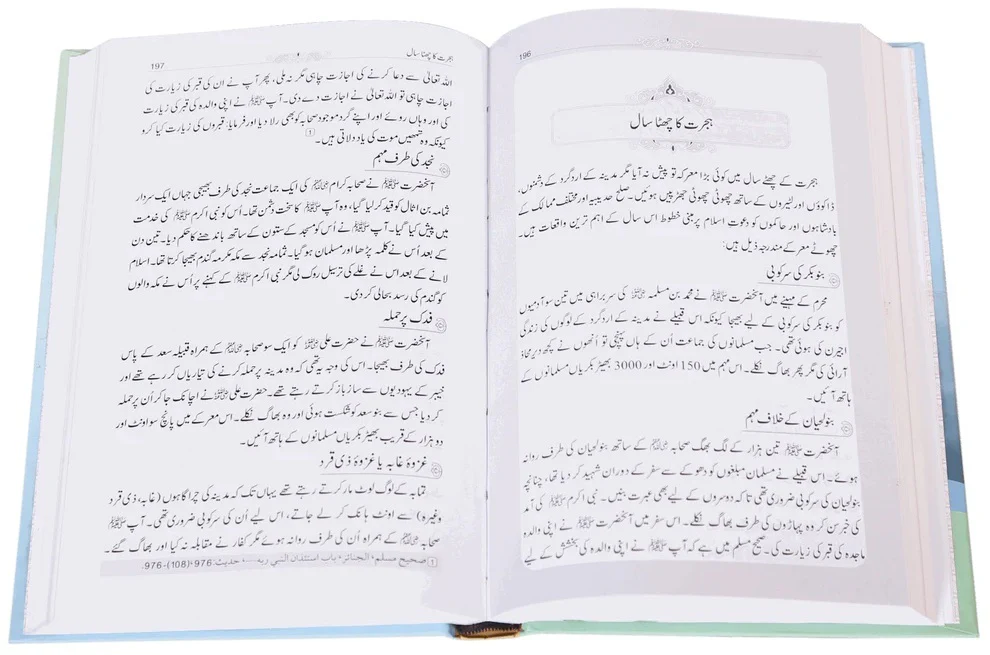 196
ہجرت کا چھٹا سال
ہجرت کے چھٹے سال میں کوئی بڑا معرکہ تو پیش نہ آیا مگر مدینہ کے اردگرد کے دشمنوں،
ڈاکوؤں اور لٹیروں کے ساتھ چھوٹی چھوٹی جھڑپیں ہوئیں۔ صلح حدیبیہ اور مختلف ممالک کے
بادشاہوں اور حاکموں کو دعوتِ اسلام پر مبنی خطوط اس سال کے اہم ترین واقعات ہیں۔
چھوٹے معرکے مندرجہ ذیل ہیں:
بنو بکر کی سرکوبی
محرم کے مہینے میں آنحضرت ﷺ نے محمد بن مسلمہ رضی اللہ عنہ کی سربراہی میں تین سو آدمیوں
کو بنو بکر کی سرکوبی کے لیے بھیجا کیونکہ اس قبیلے نے مدینہ کے اردگرد کے لوگوں کی زندگی
اجیرن کی ہوئی تھی۔ جب مسلمانوں کی جماعت اُن کے ہاں پہنچی تو اُنھوں نے کچھ دیر محاذ
آرائی کی مگر پھر بھاگ نکلے۔ اس مہم میں 150 اونٹ اور 3000 بھیڑ بکریاں مسلمانوں کے
ہاتھ آئیں۔
بنو لحیان کے خلاف مہم
آنحضرت ﷺ تین ہزار کے لگ بھگ صحابہ کے ساتھ بنو لحیان کی طرف روانہ
ہوئے۔ اس قبیلے نے مسلمان مبلغوں کو دھوکے سے سفر کے دوران شہید کر دیا تھا، چنانچہ
بنولحیان کی سرکوبی ضروری تھی تاکہ دوسروں کے لیے بھی عبرت بنیں۔ نبی اکرم ﷺ کی آمد
کی خبر سن کر وہ پہاڑوں کی طرف بھاگ نکلے۔ اس سفر میں آنحضرت ﷺ نے اپنی والدہ
ماجدہ کی قبر کی زیارت کی۔ صحیح مسلم میں ہے کہ آپ ﷺ نے اپنی والدہ کی بخشش کے لیے
ہجرت کا چھٹا سال
197
اللہ تعالیٰ سے دعا کرنے کی اجازت چاہی مگر نہ ملی، پھر آپ نے ان کی قبر کی زیارت کی
اجازت چاہی تو اللہ تعالیٰ نے اجازت دے دی۔ آپ ﷺ نے اپنی والدہ کی قبر کی زیارت
کی اور وہاں روئے اور اپنے گرد موجود صحابہ کو بھی رلا دیا اور فرمایا: قبروں کی زیارت کیا کرو
کیونکہ وہ تمھیں موت کی یاد دلاتی ہیں۔ 1
نجد کی طرف مہم
آنحضرت ﷺ نے صحابہ کرام کی ایک جماعت نجد کی طرف بھیجی جہاں ایک سردار
ثمامہ بن اثال کو قید کر لیا گیا، وہ آپ ﷺ کا سخت دشمن تھا۔ اُس کو نبی اکرم ﷺ کی خدمت
میں پیش کیا گیا۔ آپ ﷺ نے اُس کو مسجد کے ستون کے ساتھ باندھنے کا حکم دیا۔ تین دن
کے بعد اُس نے کلمہ پڑھا اور مسلمان ہو گیا۔ ثمامہ نجد سے مکہ مکرمہ گندم بھیجا کرتا تھا۔ اسلام
لانے کے بعد اس نے غلے کی ترسیل روک لی مگر نبی اکرم ﷺ کے کہنے پر اُس نے مکہ والوں
کو گندم کی رسد بحال کر دی۔
فدک پر حملہ
آنحضرت ﷺ نے حضرت علی کو ایک سو صحابہ کے ہمراہ قبیلہ سعد کے پاس
فدک کی طرف بھیجا۔ اس کی وجہ یہ تھی کہ وہ مدینہ پر حملہ کرنے کی تیاریاں کر رہے تھے اور
خیبر کے یہودیوں سے ساز باز کرتے رہتے تھے۔ حضرت علی نے اچانک جا کر اُن پر حملہ
کر دیا جس سے بنو سعد کو شکست ہوئی اور وہ بھاگ نکلے۔ اس معرکے میں پانچ سو اونٹ اور
دو ہزار کے قریب بھیڑ بکریاں مسلمانوں کے ہاتھ آئیں۔
غزوۂ غابہ یا غزوۂ ذی قرد
تہامہ کے لوگ لوٹ مار کرتے رہتے تھے یہاں تک کہ مدینہ کی چراگاہوں (غابہ، ذی قرد
وغیرہ) سے اونٹ ہانک کر لے جاتے، اس لیے اُن کی سرکوبی ضروری تھی۔ آپ ﷺ
صحابہ کے ہمراہ اُن کی طرف روانہ ہوئے مگر کفار نے مقابلہ نہ کیا اور بھاگ گئے۔
1 صحیح مسلم، الجنائز، باب استئذان النبي ربه......، حدیث: 976، (108)-976.